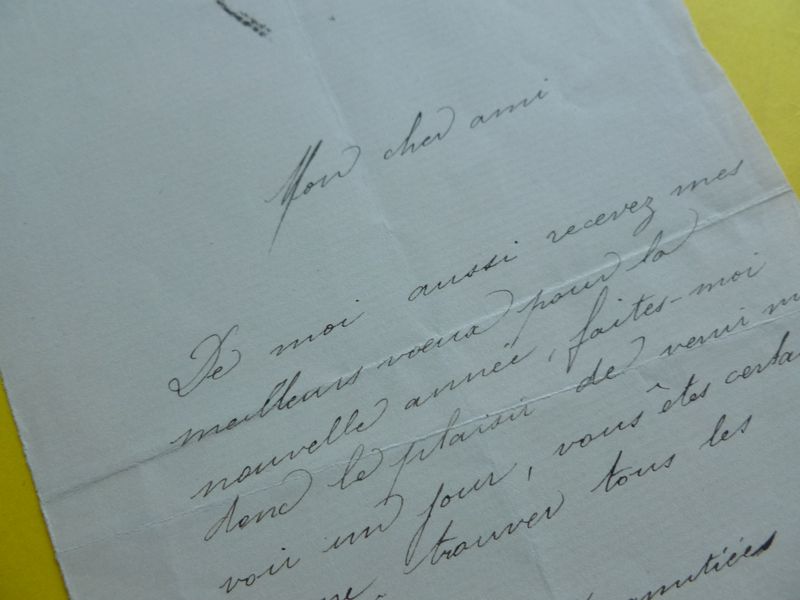 Mon cher ami
De moi aussi recevez mes
meilleurs vœux pour la
nouvelle année, faites-moi
donc le plaisir de venir
voir un jour, vous êtes
trouver tous les